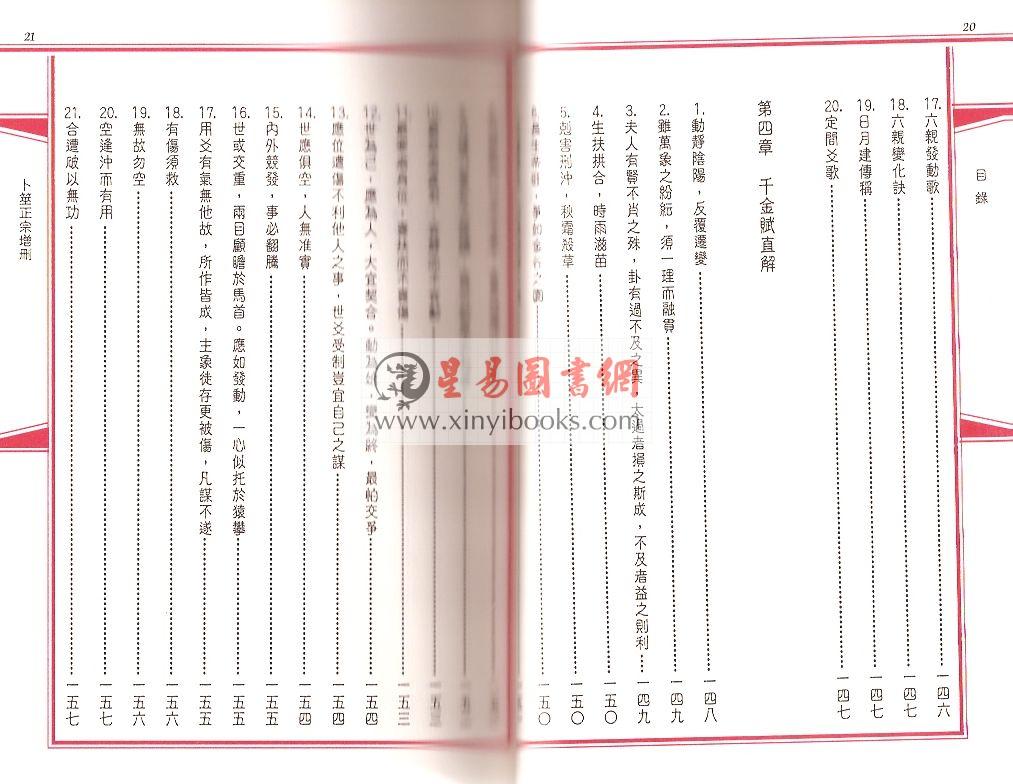 20
目錄
17. 六親發動歌 一四六
18. 六親變化訣 一四七
19. 日月建傳稱 一四七
20. 定間爻歌 一四七
第四章 千金賦直解
1. 動靜陰陽，反覆遷變 一四八
2. 雖萬象之紛紜，須一理而融貫 一四九
3. 夫人有賢不肖之殊，卦有過不及之異，太過者損之斯成，不及者益之則利 一四九
4. 生扶拱合，時雨滋苗 一五〇
5. 剋害刑沖，秋霜殺草 一五〇
一五〇
12. 世為己，應為人，大宜契合。動為始，變為終，最怕交爭 一五四
13. 應位遭傷不利他人之事，世爻受制豈宜自己之謀 一五四
14. 世應俱空，人無准實 一五四
15. 內外競發，事必翻騰 一五五
16. 世或交重，兩目顧瞻於馬首。應如發動，一心似托於猿攀 一五五
17. 用爻有氣無他故，所作皆成，主象徒存更被傷，凡謀不遂 一五五
18. 有傷須救 一五六
19. 無故勿空 一五六
20. 空逢沖而有用 一五七
21. 合遭破以無功 一五七
卜筮正宗增刪
21
星易圖書網
www.xinyibooks.com